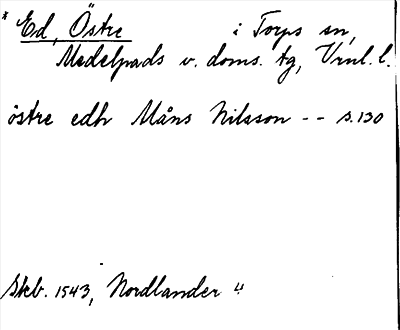 * Ed, Östre i Torps sn,
Medelpads v. doms. tg, Vrnl. l.
östre edh Måns Nilsson -- s. 130
Skb. 1543, Nordlander